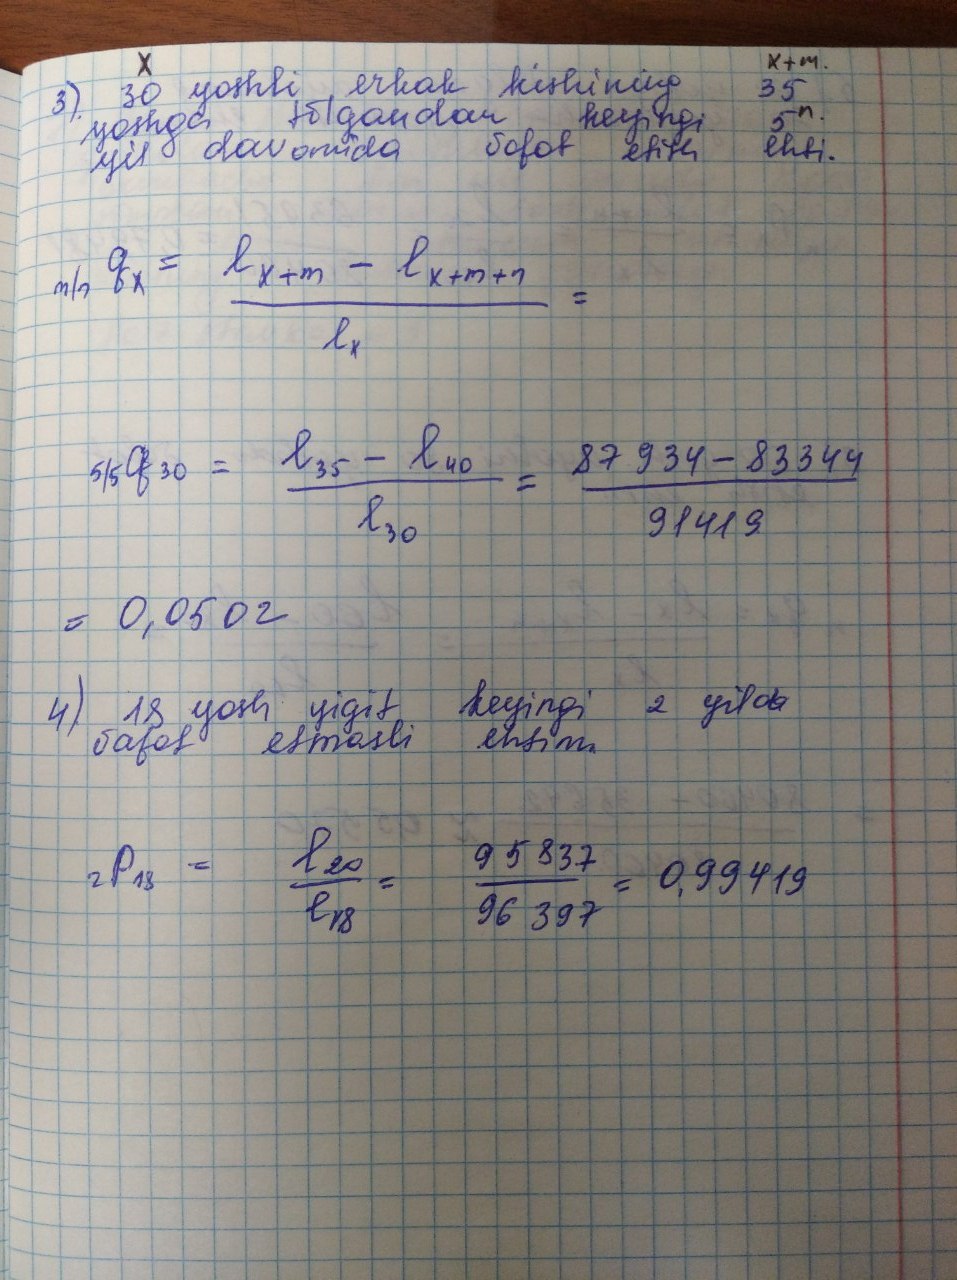 x x+m.
3). 30 yoshli erkak kishining 35
yoshga to'lgandan keyingi 5 n.
yil davomida vafot etish ehti.
m/n qx = lx+m - lx+m+n / lx =
5/5 q30 = l35 - l40 / l30 = 87 934 - 83344 / 91419
= 0,0502
4) 18 yosh yigit keyingi 2 yilda
vafot etmasli ehtim.
2P18 = l20 / l18 = 95 837 / 96 397 = 0,99419